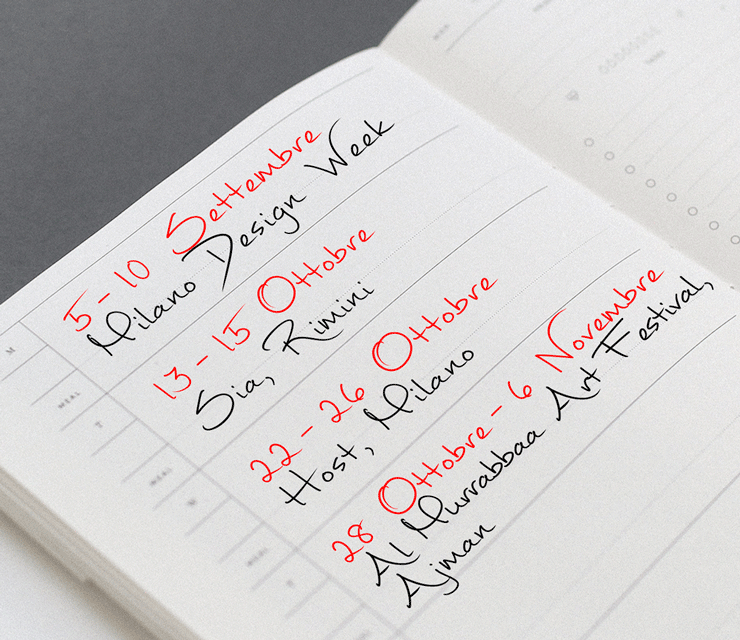 5 - 10 Settembre
Milano Design Week
13 - 15 Ottobre
Sia, Rimini
22 - 26 Ottobre
Host, Milano
28 Ottobre - 6 Novembre
Al Murrabbaa Art Festival,
Ajman
M
MEAL
T
MEAL
W
MEAL
T